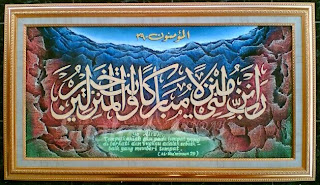 المؤمنون - ٢٩
رب أنزلني منزلا مباركا وأنت خير المنزلين
aku pada tempat yang
di berkati dan Engkau adalah sebaik -
baik yang memberi tempat.
(Al-Mu'minun 29)